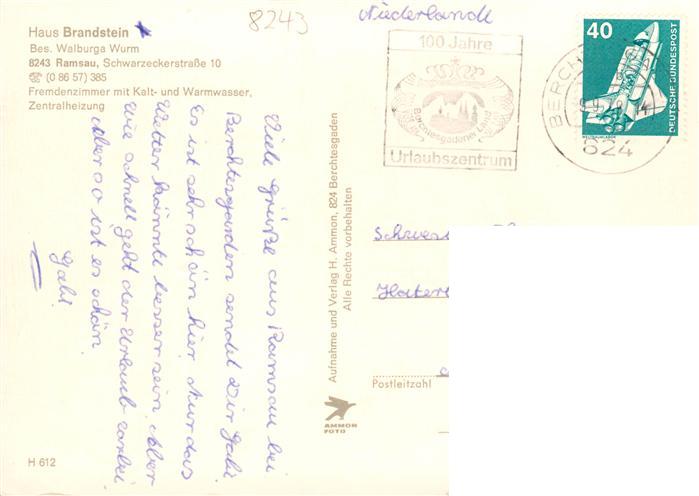 8243
Niederlande
Haus Brandstein
Bes. Walburga Wurm
8243 Ramsau, Schwarzeckerstraße 10
(0 86 57) 385
Fremdenzimmer mit Kalt- und Warmwasser,
Zentralheizung
Viele Grüße aus Ramsau bei
Berchtesgaden sendet Dir Gabi
Es ist sehr schön hier. Nur das
Wetter könnte besser sein. Aber
wie schnell geht der Urlaub vorbei
Aber so ist es schön
Gabi
H 612
Aufnahme und Verlag H. Ammon, 824 Berchtesgaden
Alle Rechte vorbehalten
AMMON
FOTO
100 Jahre
Berchtesgadener Land
Urlaubszentrum
BERCHT
824
40
DEUTSCHE BUNDESPOST
WELTRAUMLABOR
Postleitzahl